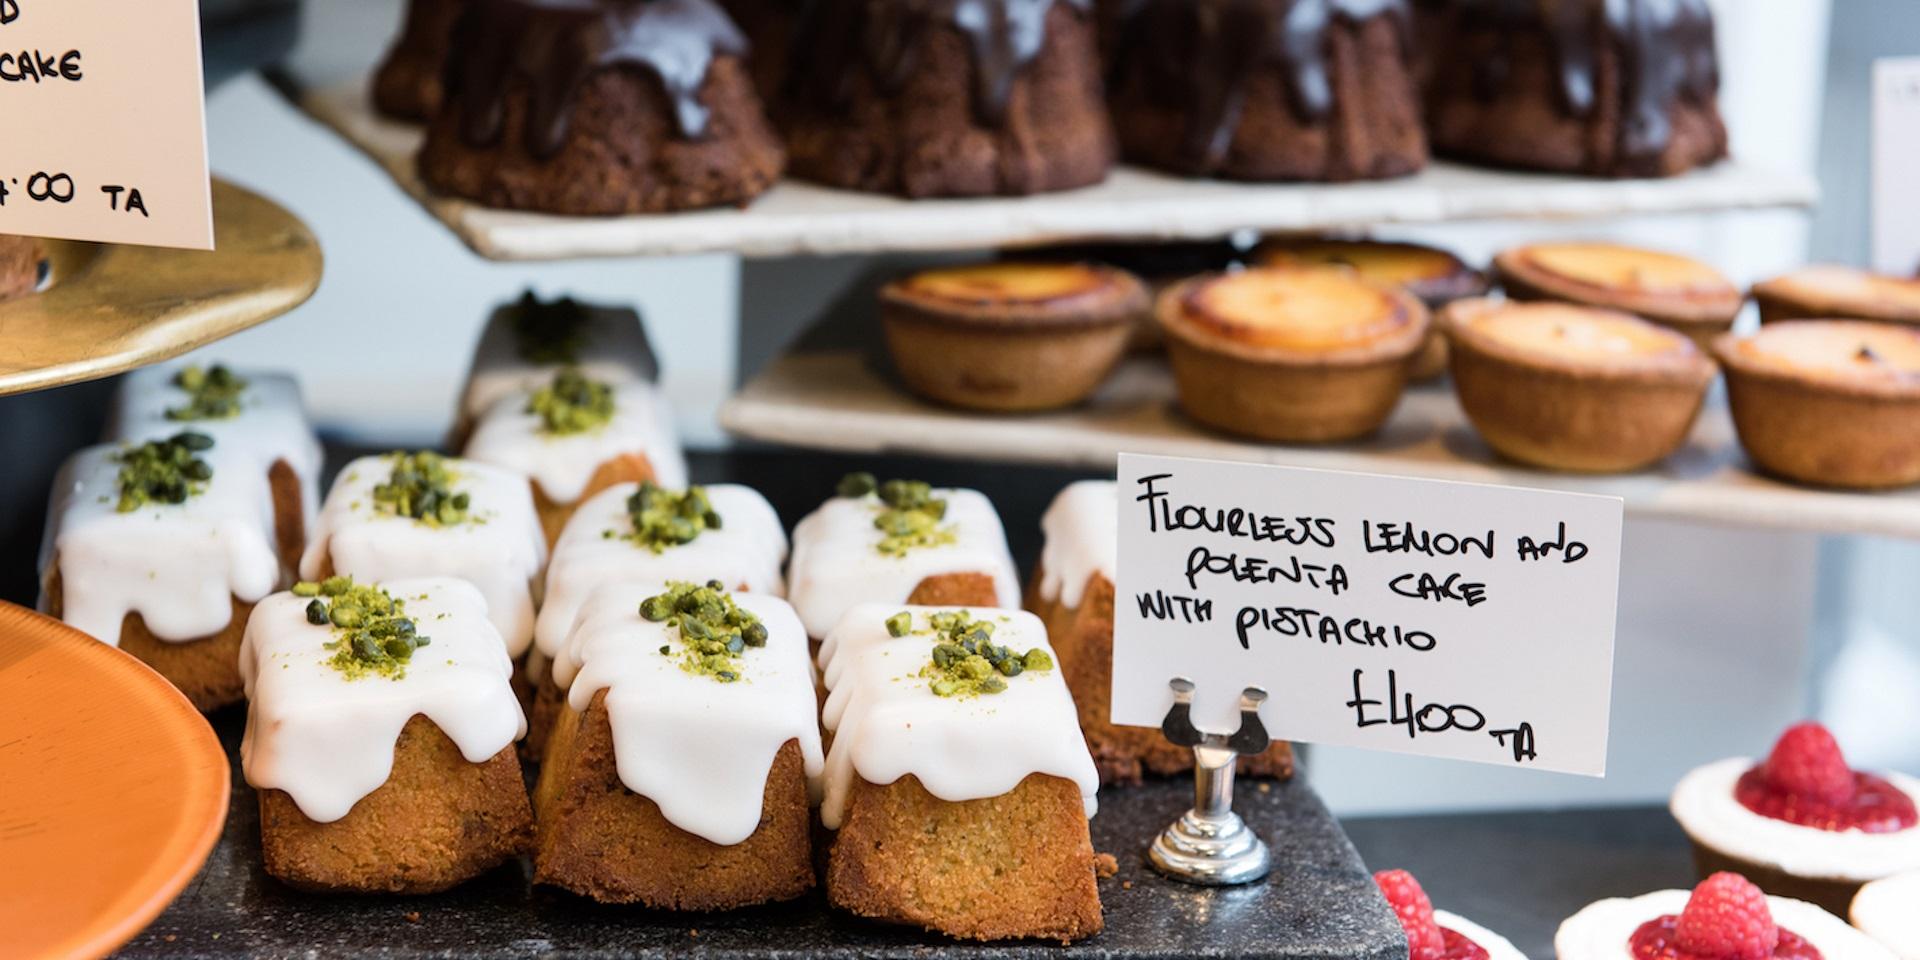 D
CAKE
4.00 TA
FLOURLESS LEMON AND
POLENTA CAKE
WITH PISTACHIO
£400 TA